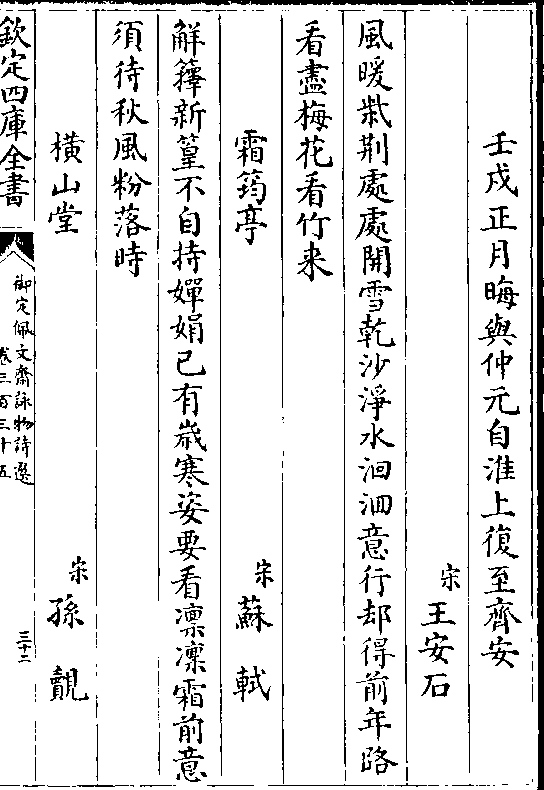 壬戌正月晦與仲元自淮上復至齊安
宋王安石
風暖柴荆處處開雪乾沙淨水洄洄意行却得前年路
看盡梅花看竹来
霜筠亭
宋蘇軾
解籜新篁不自持嬋娟已有歲寒姿要看凛凛霜前意
須待秋風粉落時
橫山堂
宋孫覿
欽定四庫全書
御定佩文齋詠物詩選
卷三百三十五
三十二